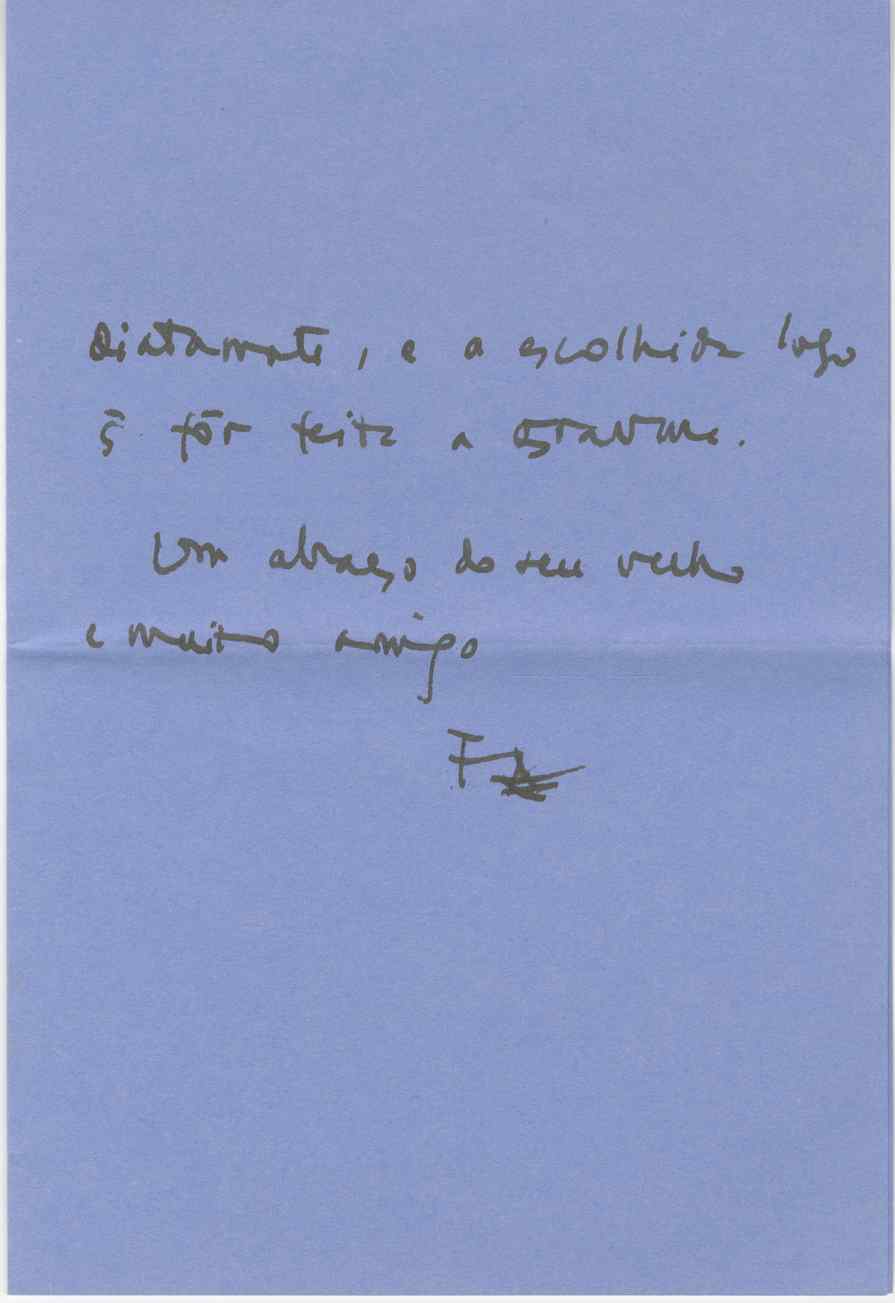 diatamente, e a escolhida logo
q̃ fôr feita a gravura.
Um abraço do seu velho
e muito amigo